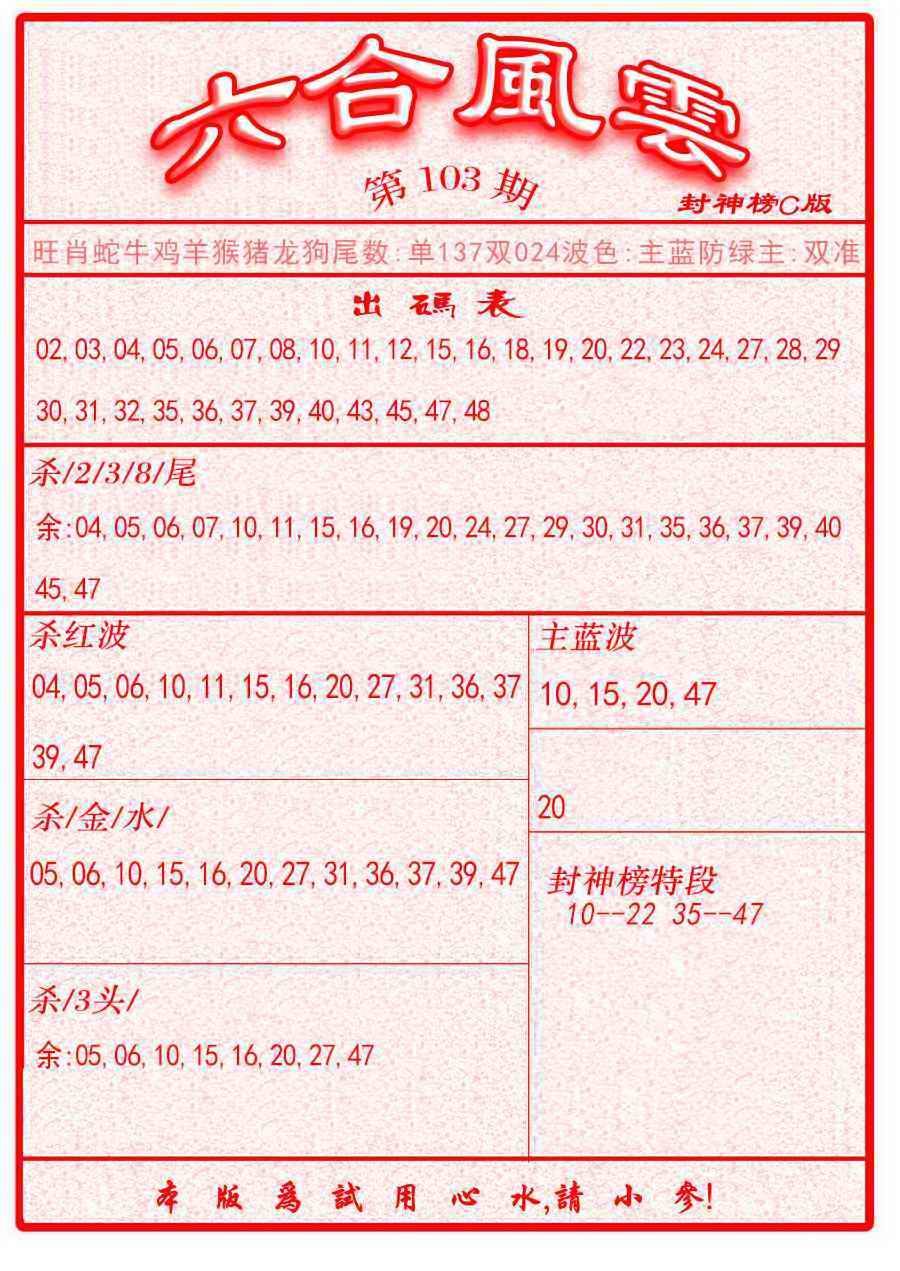 六合風雲
第103期
封神榜C版
旺肖蛇牛鸡羊猴猪龙狗尾数:单137双024波色:主蓝防绿主:双准
出碼表
02,03,04,05,06,07,08,10,11,12,15,16,18,19,20,22,23,24,27,28,29
30,31,32,35,36,37,39,40,43,45,47,48
杀/2/3/8/尾
余:04,05,06,07,10,11,15,16,19,20,24,27,29,30,31,35,36,37,39,40
45,47
杀红波
04,05,06,10,11,15,16,20,27,31,36,37
39,47
主蓝波
10,15,20,47
20
杀/金/水/
05,06,10,15,16,20,27,31,36,37,39,47
封神榜特段
10--22 35--47
杀/3头/
余:05,06,10,15,16,20,27,47
本版爲試用心水,請小參!